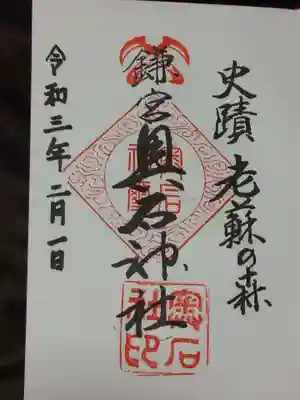 史蹟 老蘇の森
鎌宮奥石神社
令和三年二月一日
奥石
社印